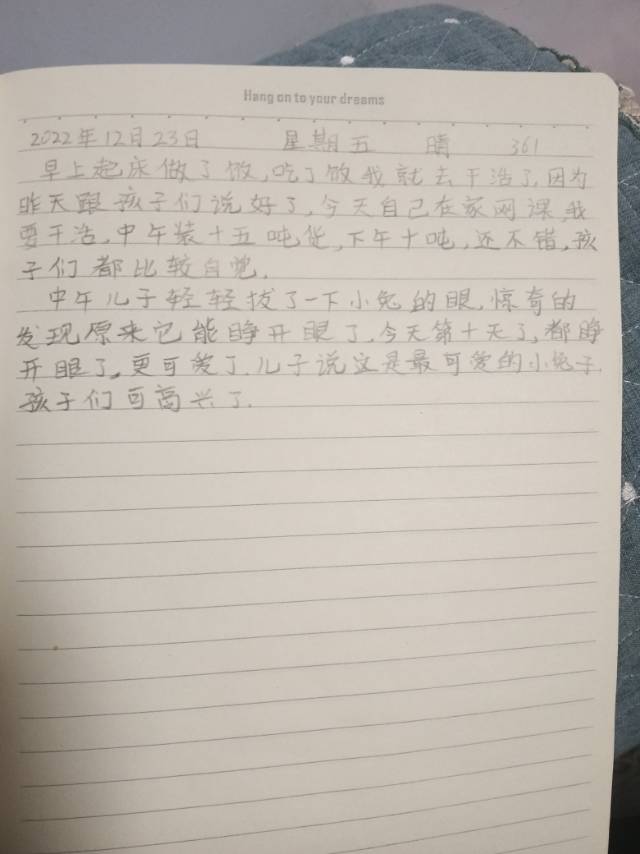 Hang on to your dreams
2022年12月23日 星期五 晴 361
早上起床做了饭,吃了饭我就去干活了,因为
昨天跟孩子们说好了,今天自己在家网课,我
要干活,中午装十五吨货,下午十吨,还不错,孩
子们都比较自觉.
中午儿子轻轻拔了一下小兔的眼,惊奇的
发现原来它能睁开眼了.今天第十天了,都睁
开眼了,更可爱了.儿子说这是最可爱的小兔子.
孩子们可高兴了.